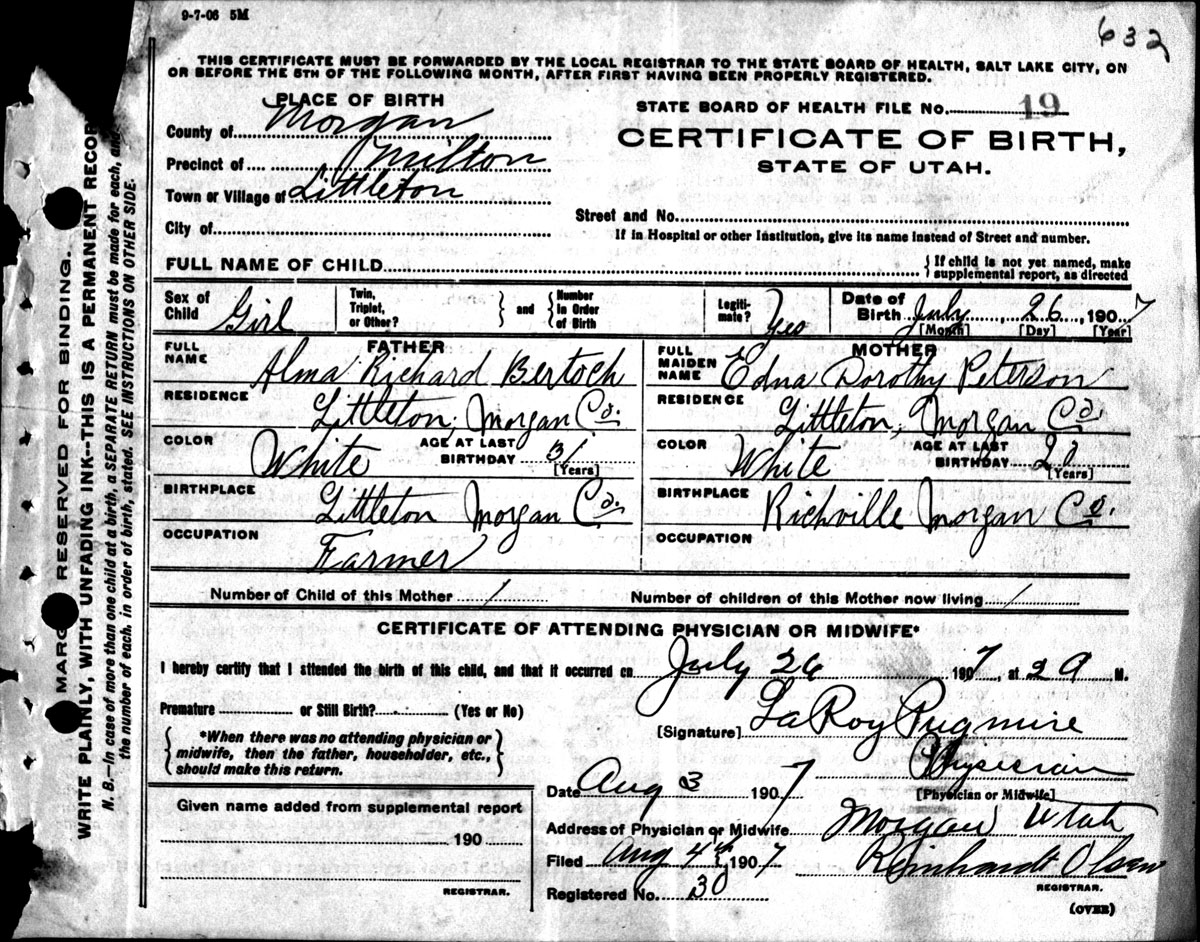 9-7-06 5M
632
THIS CERTIFICATE MUST BE FORWARDED BY THE LOCAL REGISTRAR TO THE STATE BOARD OF HEALTH, SALT LAKE CITY, ON
OR BEFORE THE 5TH OF THE FOLLOWING MONTH, AFTER FIRST HAVING BEEN PROPERLY REGISTERED.
PLACE OF BIRTH
County of Morgan
Precinct of Milton
Town or Village of Littleton
City of
STATE BOARD OF HEALTH FILE No. 19
CERTIFICATE OF BIRTH,
STATE OF UTAH.
Street and No.
If in Hospital or other Institution, give its name instead of Street and number.
FULL NAME OF CHILD
{ If child is not yet named, make
supplemental report, as directed
Sex of Child Girl
Twin, Triplet, or Other? } and { Number in Order of Birth
Legiti-mate? Yes
Date of Birth July 26, 1907
[Month] [Day] [Year]
FATHER
FULL NAME Alma Richard Bertoch
RESIDENCE Littleton, Morgan Co.
COLOR White AGE AT LAST BIRTHDAY 31 [Years]
BIRTHPLACE Littleton Morgan Co.
OCCUPATION Farmer
MOTHER
FULL MAIDEN NAME Edna Dorothy Peterson
RESIDENCE Littleton, Morgan Co.
COLOR White AGE AT LAST BIRTHDAY [Years]
BIRTHPLACE Richville Morgan Co.
OCCUPATION
Number of Child of this Mother 1 Number of children of this Mother now living 1
CERTIFICATE OF ATTENDING PHYSICIAN OR MIDWIFE*
I hereby certify that I attended the birth of this child, and that it occurred on July 26 1907, at 2 a M.
Premature or Still Birth? (Yes or No)
{ *When there was no attending physician or
midwife, then the father, householder, etc.,
should make this return. }
[Signature] LaRoy Pugmire
Physician
[Physician or Midwife]
Date Aug 3 1907
Address of Physician or Midwife Morgan Utah
Filed Aug 4th 1907 Reinhardt Olsen
REGISTRAR.
Registered No. 30
(OVER)
Given name added from supplemental report
190
REGISTRAR.
MARGIN RESERVED FOR BINDING.
WRITE PLAINLY, WITH UNFADING INK--THIS IS A PERMANENT RECORD
N. B.—In case of more than one child at a birth, a SEPARATE RETURN must be made for each, and
the number of each, in order of birth, stated. SEE INSTRUCTIONS ON OTHER SIDE.